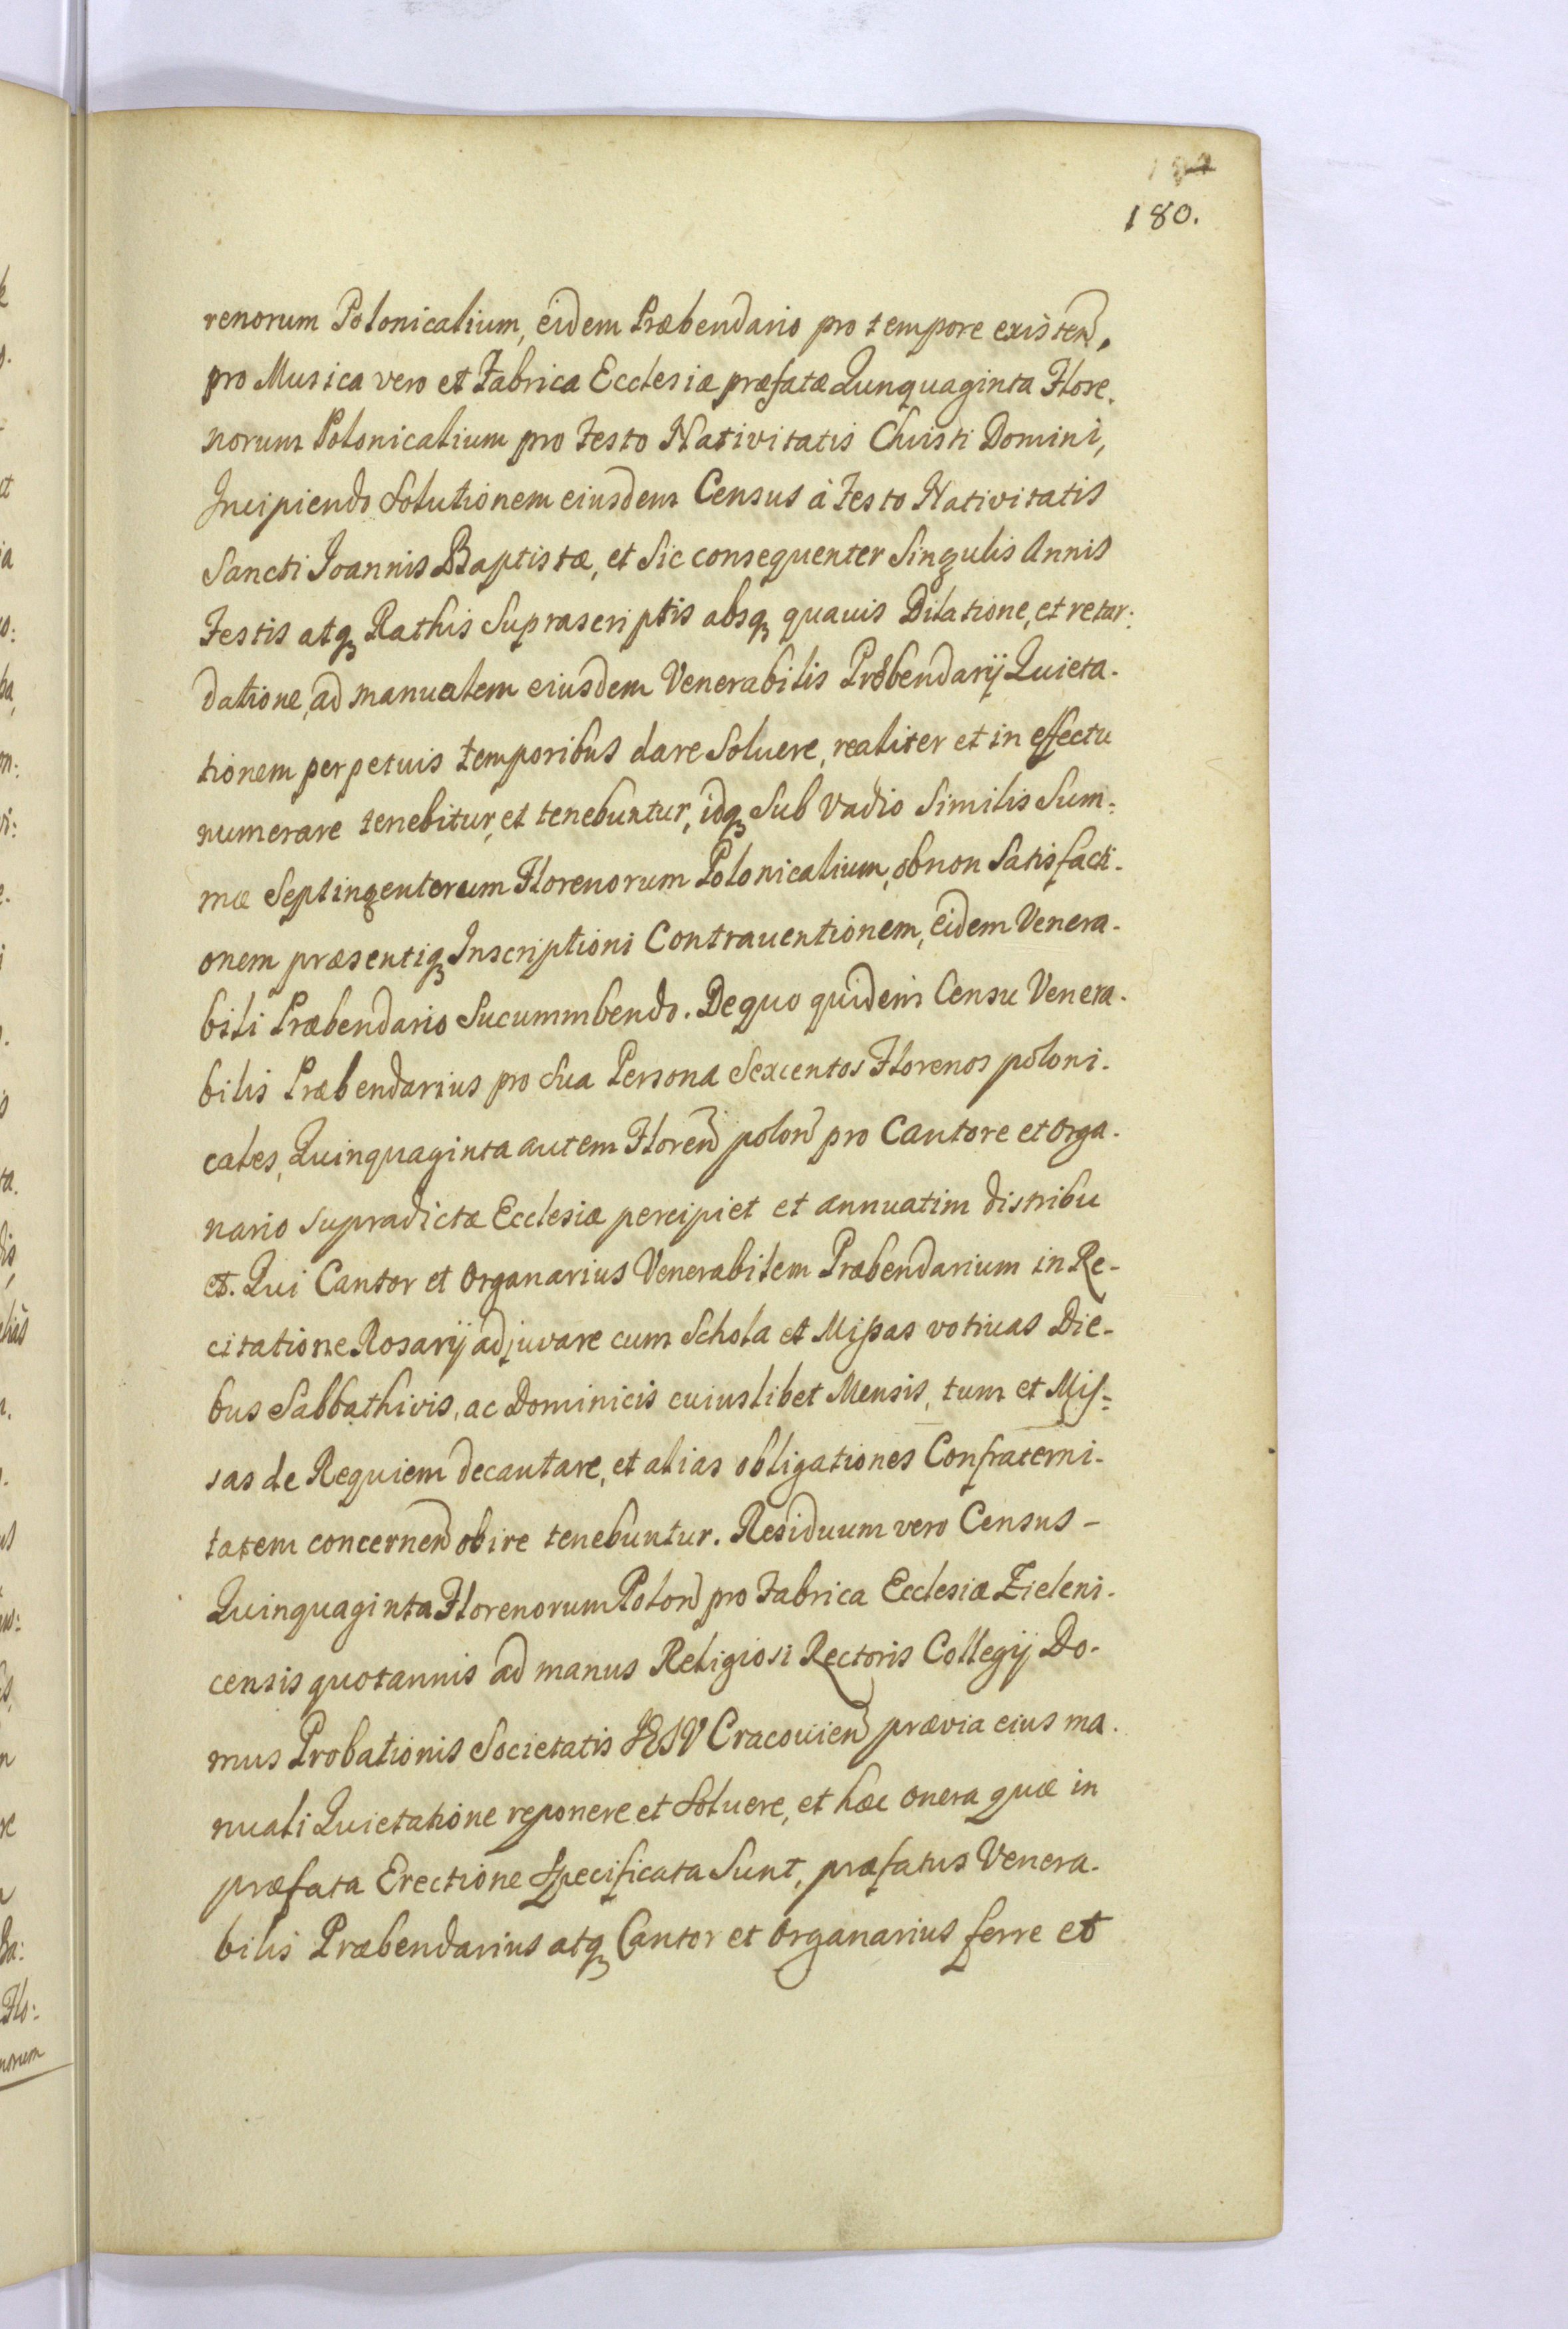 180.
renorum Polonicalium, eidem Præbendario pro tempore existen,
pro Musica vero et Fabrica Ecclesiæ præfatæ Qunquaginta Flore.
norum Polonicalium pro Festo Nativitatis Christi Domini,
Incipiendo Solutionem eiusdem Census à Festo Nativitatis
Sancti Joannis Baptistæ, et sic consequenter Singulis Annis
Festis atq Rathis Suprascriptis absq quavis Dilatione, et retar:
datione, ad manualem eiusdem Venerabilis Præbendarij Quieta-
tionem perpetuis temporibus dare Soluere, realiter et in effectu
numerare tenebitur, et tenebuntur, idq Sub Vadio Similis Sum:
mæ Septingentorum Florenorum Polonicalium, ob non Satisfacti-
onem præsentiq Inscriptioni Contrauentionem, eidem Venera-
bili Præbendario Sucummbendo. De quo quidem Censu Venera-
bilis Præbendarius pro Sua Persona Sexcentos Florenos poloni-
cales, Quinquaginta autem Floren polon pro Cantore et Orga-
nario supradictæ Ecclesiæ percipiet et annuatim distribu
et. Qui Cantor et Organarius Venerabilem Præbendarium in Re-
citatione Rosarij adjuvare cum Schola et Missas votivas Die-
bus Sabbathivis, ac Dominicis cuiuslibet Mensis, tum et Mis-
sas de Requiem decantare, et alias obligationes Confraterni-
tatem concernen obire tenebuntur. Residuum vero Census -
Quinquaginta Florenorum Polon pro Fabrica Ecclesiæ Zieleni-
censis quotannis ad manus Religiosi Rectoris Collegij Do-
mus Probationis Societatis JESV Cracouien prævia eius ma-
nuali Quietatione reponere et Soluere, et hæc onera quæ in
præfata Erectione Specificata Sunt, præfatus Venera-
bilis Præbendarius atq Cantor et Organarius ferre et